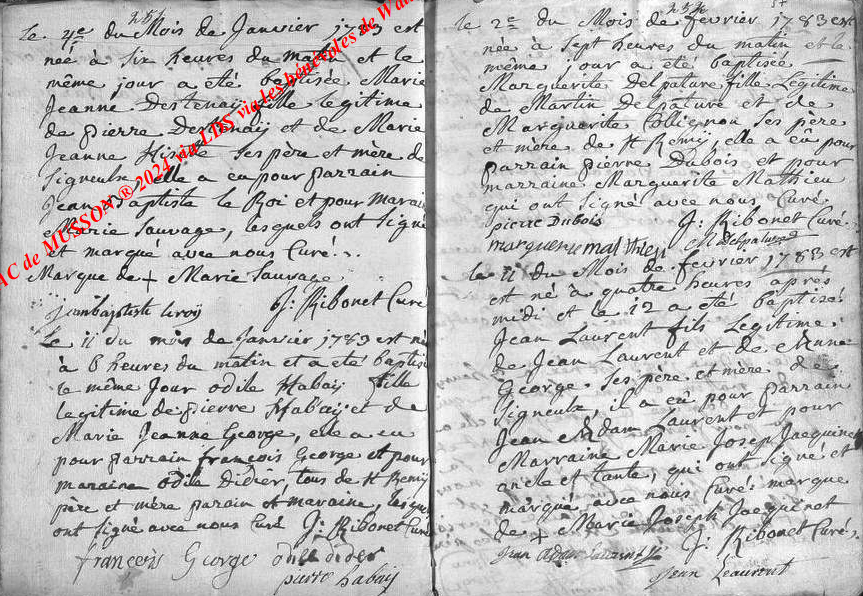 le 4e du Mois de Janvier 1783 est
née à six heures du matin et le
même jour a été baptisée Marie
Jeanne Destenaij fille legitime
de pierre Destenaij et de Marie
Jeanne ses père et mère de
Signeulx, elle a eu pour parrain
Jean Baptiste le Roi et pour maraine
Marie Sauvage, lesquels ont Signé
et marqué avec nous Curé.
Marque de + Marie Sauvage
Jeanbaptiste leroÿ J: Ribonet Curé
Le 11 du mois de Janvier 1783 est née
à 6 heures du matin et a été baptisé
le même Jour odile Habaij fille
legitime de pierre Habaij et de
Marie Jeanne George, elle a eu
pour parrain françois George et pour
maraine odile didier, tous de St Remy
père et mère parain et maraine, lesquels
ont signé avec nous Curé J: Ribonet Curé
francois George odile didier
pierre habaij
254
le 2e du Mois de fevrier 1783 est
née à sept heures du matin et le
même jour a été baptisée
Marguerite Delpature fille Légitime
de Martin Delpature et de
Marguerite Collignon Ses père
et mère de St Remij, elle a eû pour
parrain pierre Dubois et pour
marraine Marguerite Mathieu
qui ont signé avec nous Curé
pierre Dubois J: Ribonet Curé
marguerite mathieu M Delpature
le 11 du Mois de fevrier 1783 est
est né à quatre heures après
midi et le 12 a été baptisé
Jean Laurent fils Legitime
de Jean Laurent et de Anne
George Ses père et mère de
Signeulx, il a eû pour parrain
Jean Adam Laurent et pour
Marraine Marie Joseph Jacquinet
oncle et tante, qui ont signé et
marqué avec nous Curé: marque
de + Marie Joseph Jacquinet
Jean adam laurent J: Ribonet Curé
Jean Leaurent
AC de MUSSON ® 2024 via LDS via les bénévoles de